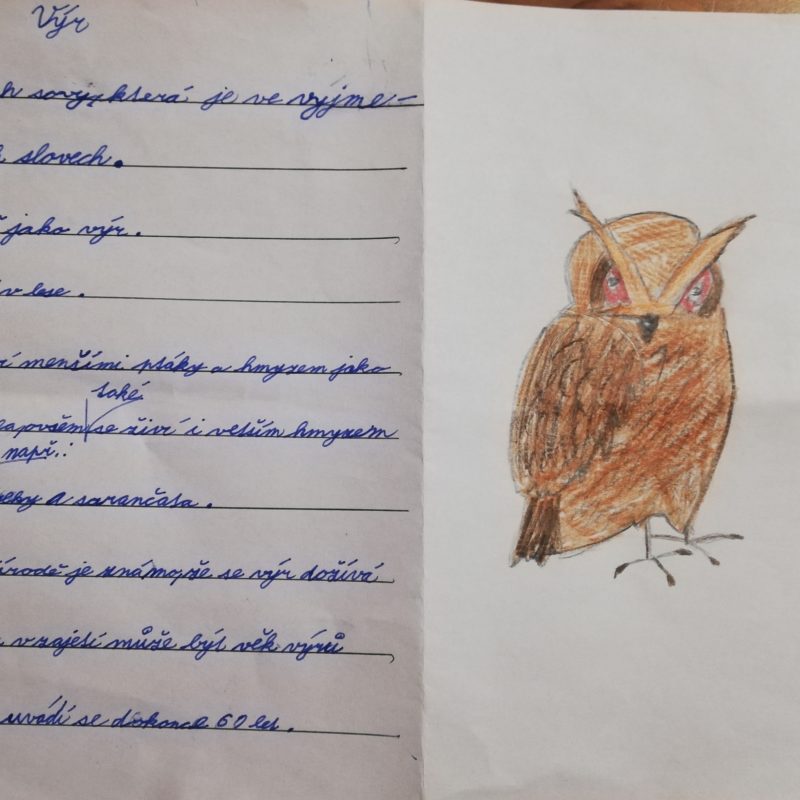 Výr
sovy, která je ve vyjme-
slovech.
jako výr.
v lese.
menšími ptáky a hmyzem jako
také
se živí i vetším hmyzem
např.:
a sarančata.
je známo, že se výr dožívá
v zajetí může být věk výrů
uvádí se dokonce 60 let.